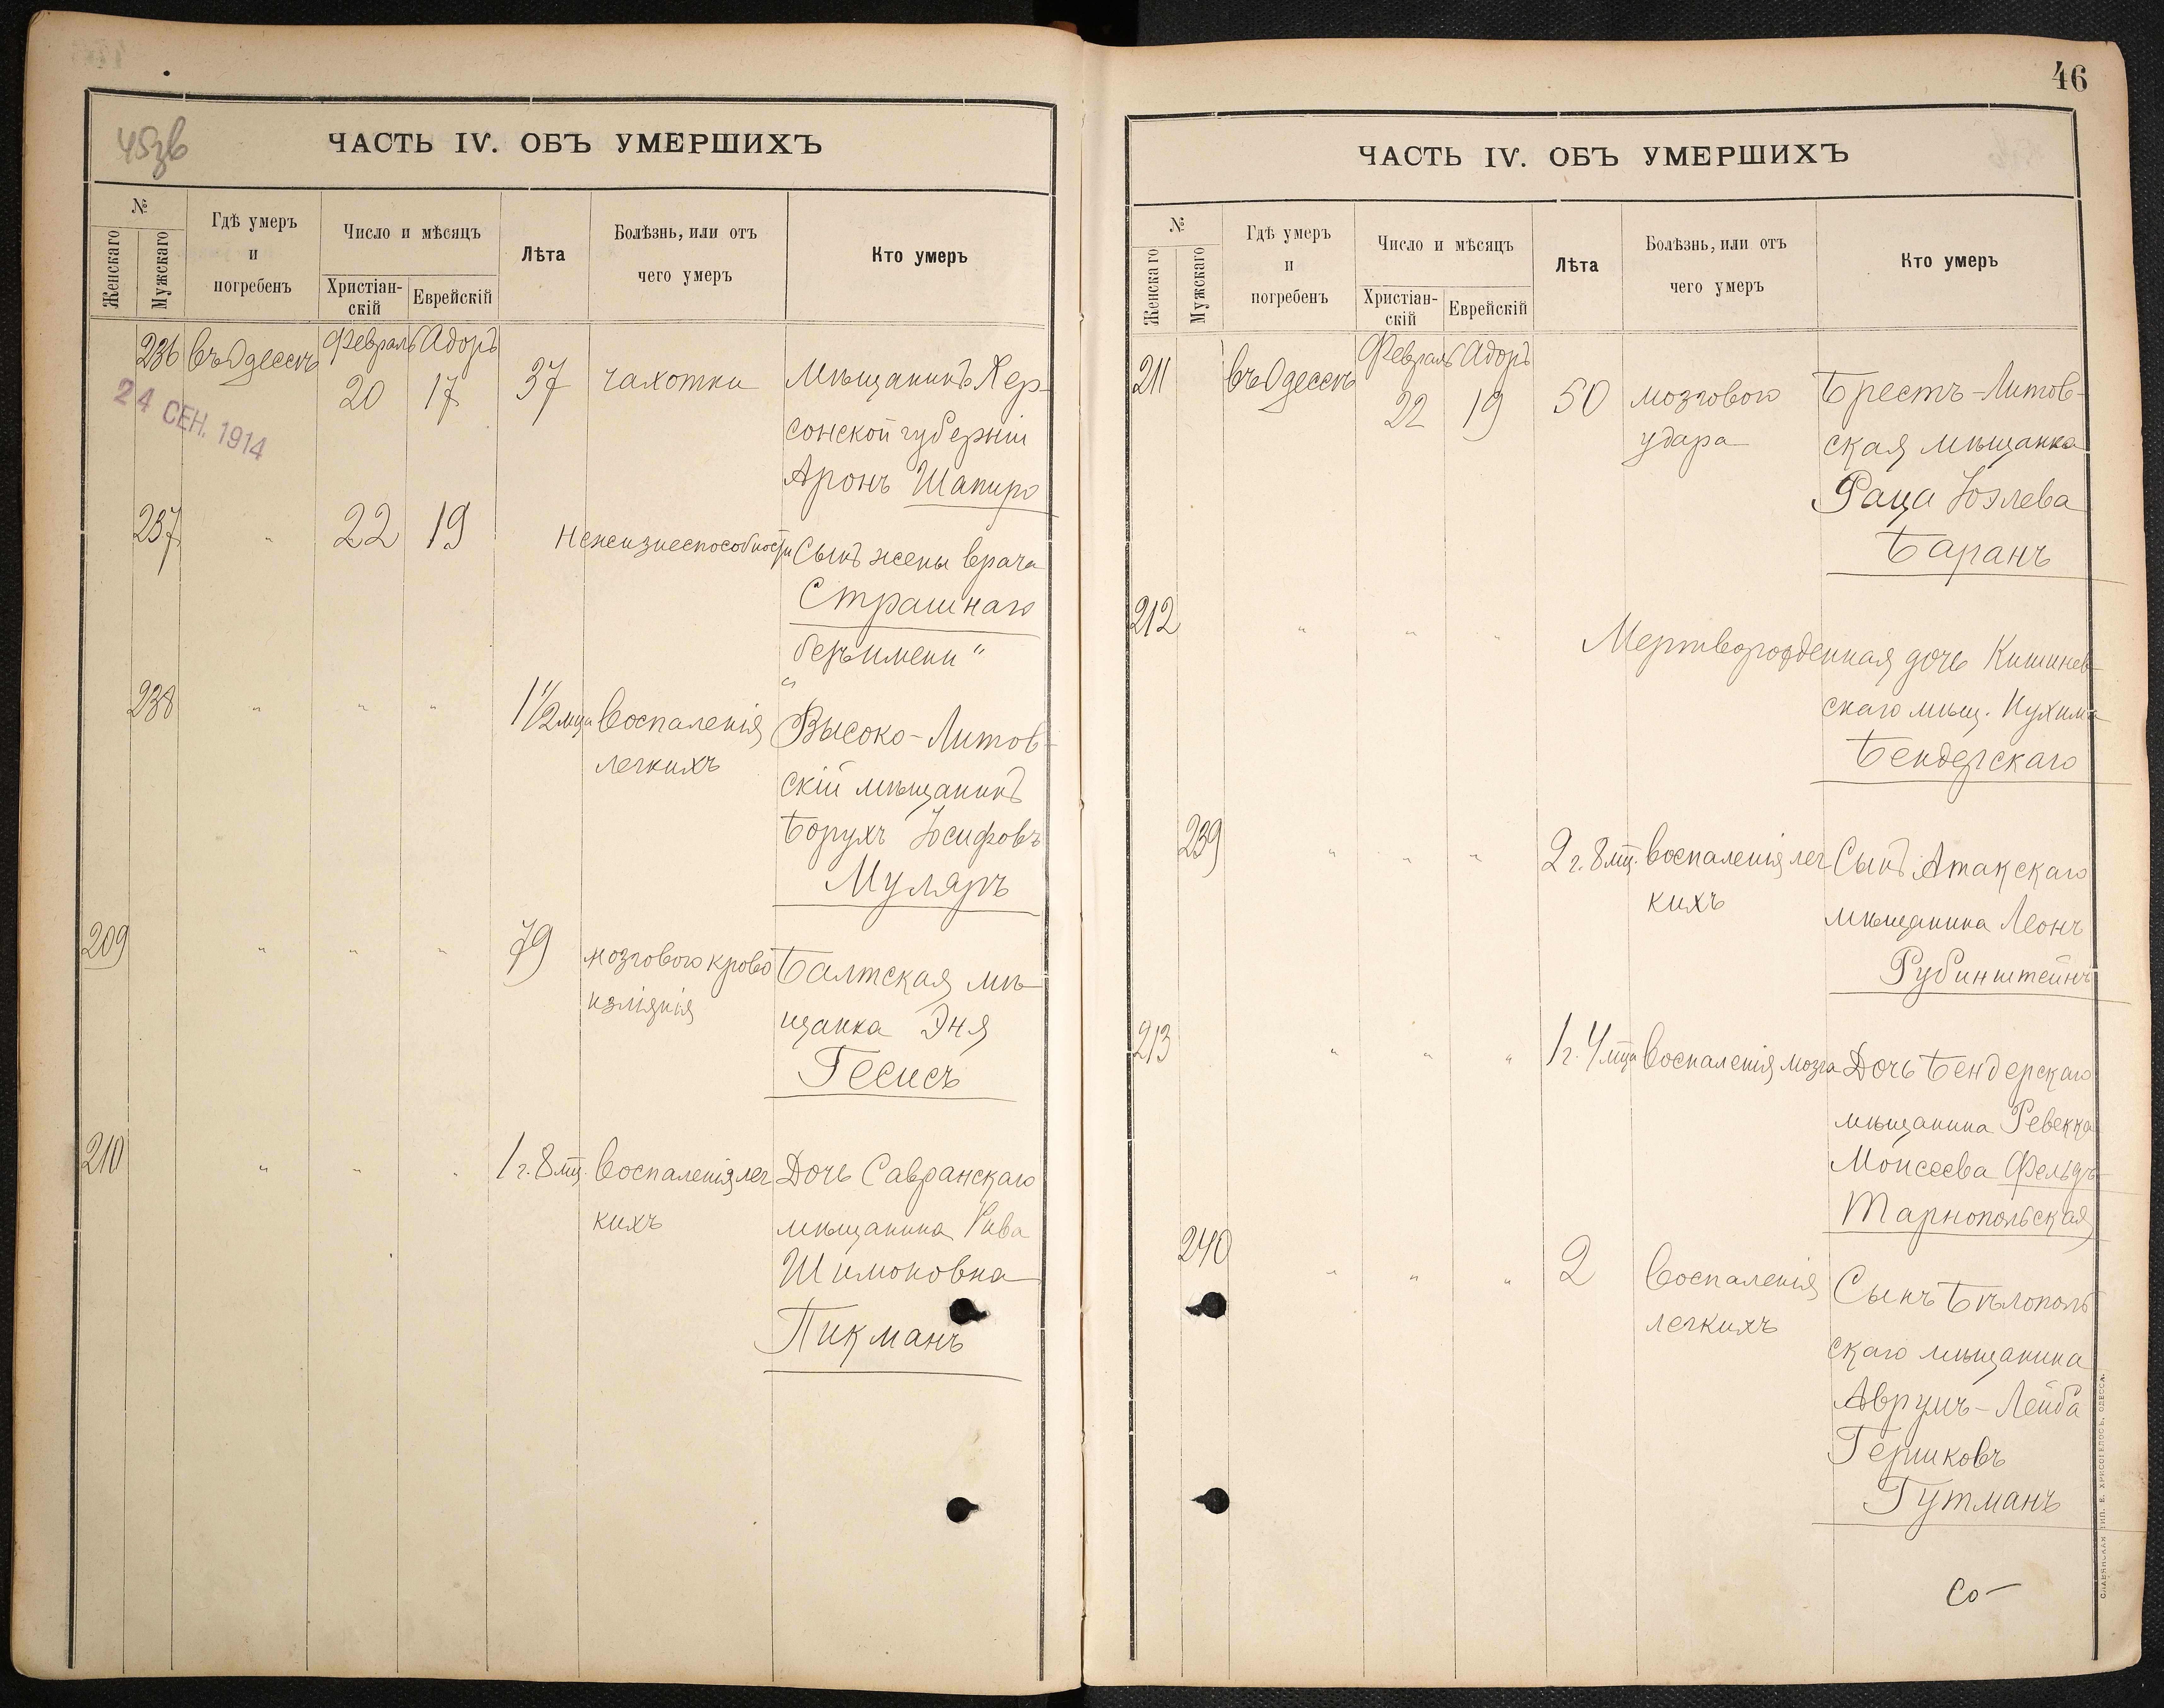 45зв
ЧАСТЬ IV. ОБЪ УМЕРШИХЪ
№
Женскаго
Мужскаго
Гдѣ умеръ
и
погребенъ
Число и мѣсяцъ
Христіан-
скій
Еврейскій
Лѣта
Болѣзнь, или отъ
чего умеръ
Кто умеръ
236 въ Одессѣ Февраль Адоръ
20 17 37 чахотки Мѣщанинъ Хер-
24 СЕН. 1914
сонской губерніи
Аронъ Шапиро
237 " 22 19 Нежизнеспособности Сынъ жены врача
Страшнаго
безъ имени "
"
238 " " " 1 1/2 мца воспаленія Высоко-Литов-
легкихъ
скій мѣщанинъ
Борухъ Іосифовъ
Муляръ
209 " " " 79 мозгового крово Балтская мѣ-
изліянія
щанка Эня
Гесисъ
210 " " " 1 г. 8 мц. воспаленія лег Дочь Савранскаго
кихъ мѣщанина Рива
Шимоновна
Пикманъ
46
ЧАСТЬ IV. ОБЪ УМЕРШИХЪ
№
Женскаго
Мужскаго
Гдѣ умеръ
и
погребенъ
Число и мѣсяцъ
Христіан-
скій
Еврейскій
Лѣта
Болѣзнь, или отъ
чего умеръ
Кто умеръ
211 въ Одессѣ Февраль Адоръ
22 19 50 мозгового Брестъ-Литов-
удара ская мѣщанка
Фаца Іоэлева
Баранъ
212 " " " Мертворожденная дочь Кишинев-
скаго мѣщ. Нухима
Бендерскаго
239 " " " 2 г. 8 мц. воспаленія лег Сынъ Атакскаго
кихъ мѣщанина Леонъ
Рубинштейнъ
213 " " " 1 г. 4 мца воспаленія мозга Дочь Бендерскаго
мѣщанина Ревекка
Моисеева Фельдъ-
Тарнопольская
240 " " " 2 воспаленія Сынъ Бѣлополь
легкихъ
скаго мѣщанина
Аврумъ-Лейба
Гершковъ
Гутманъ
Со-
СЛАВЯНСКАЯ ТИП. Е. ХРИСОГЕЛОСЪ, ОДЕССА.